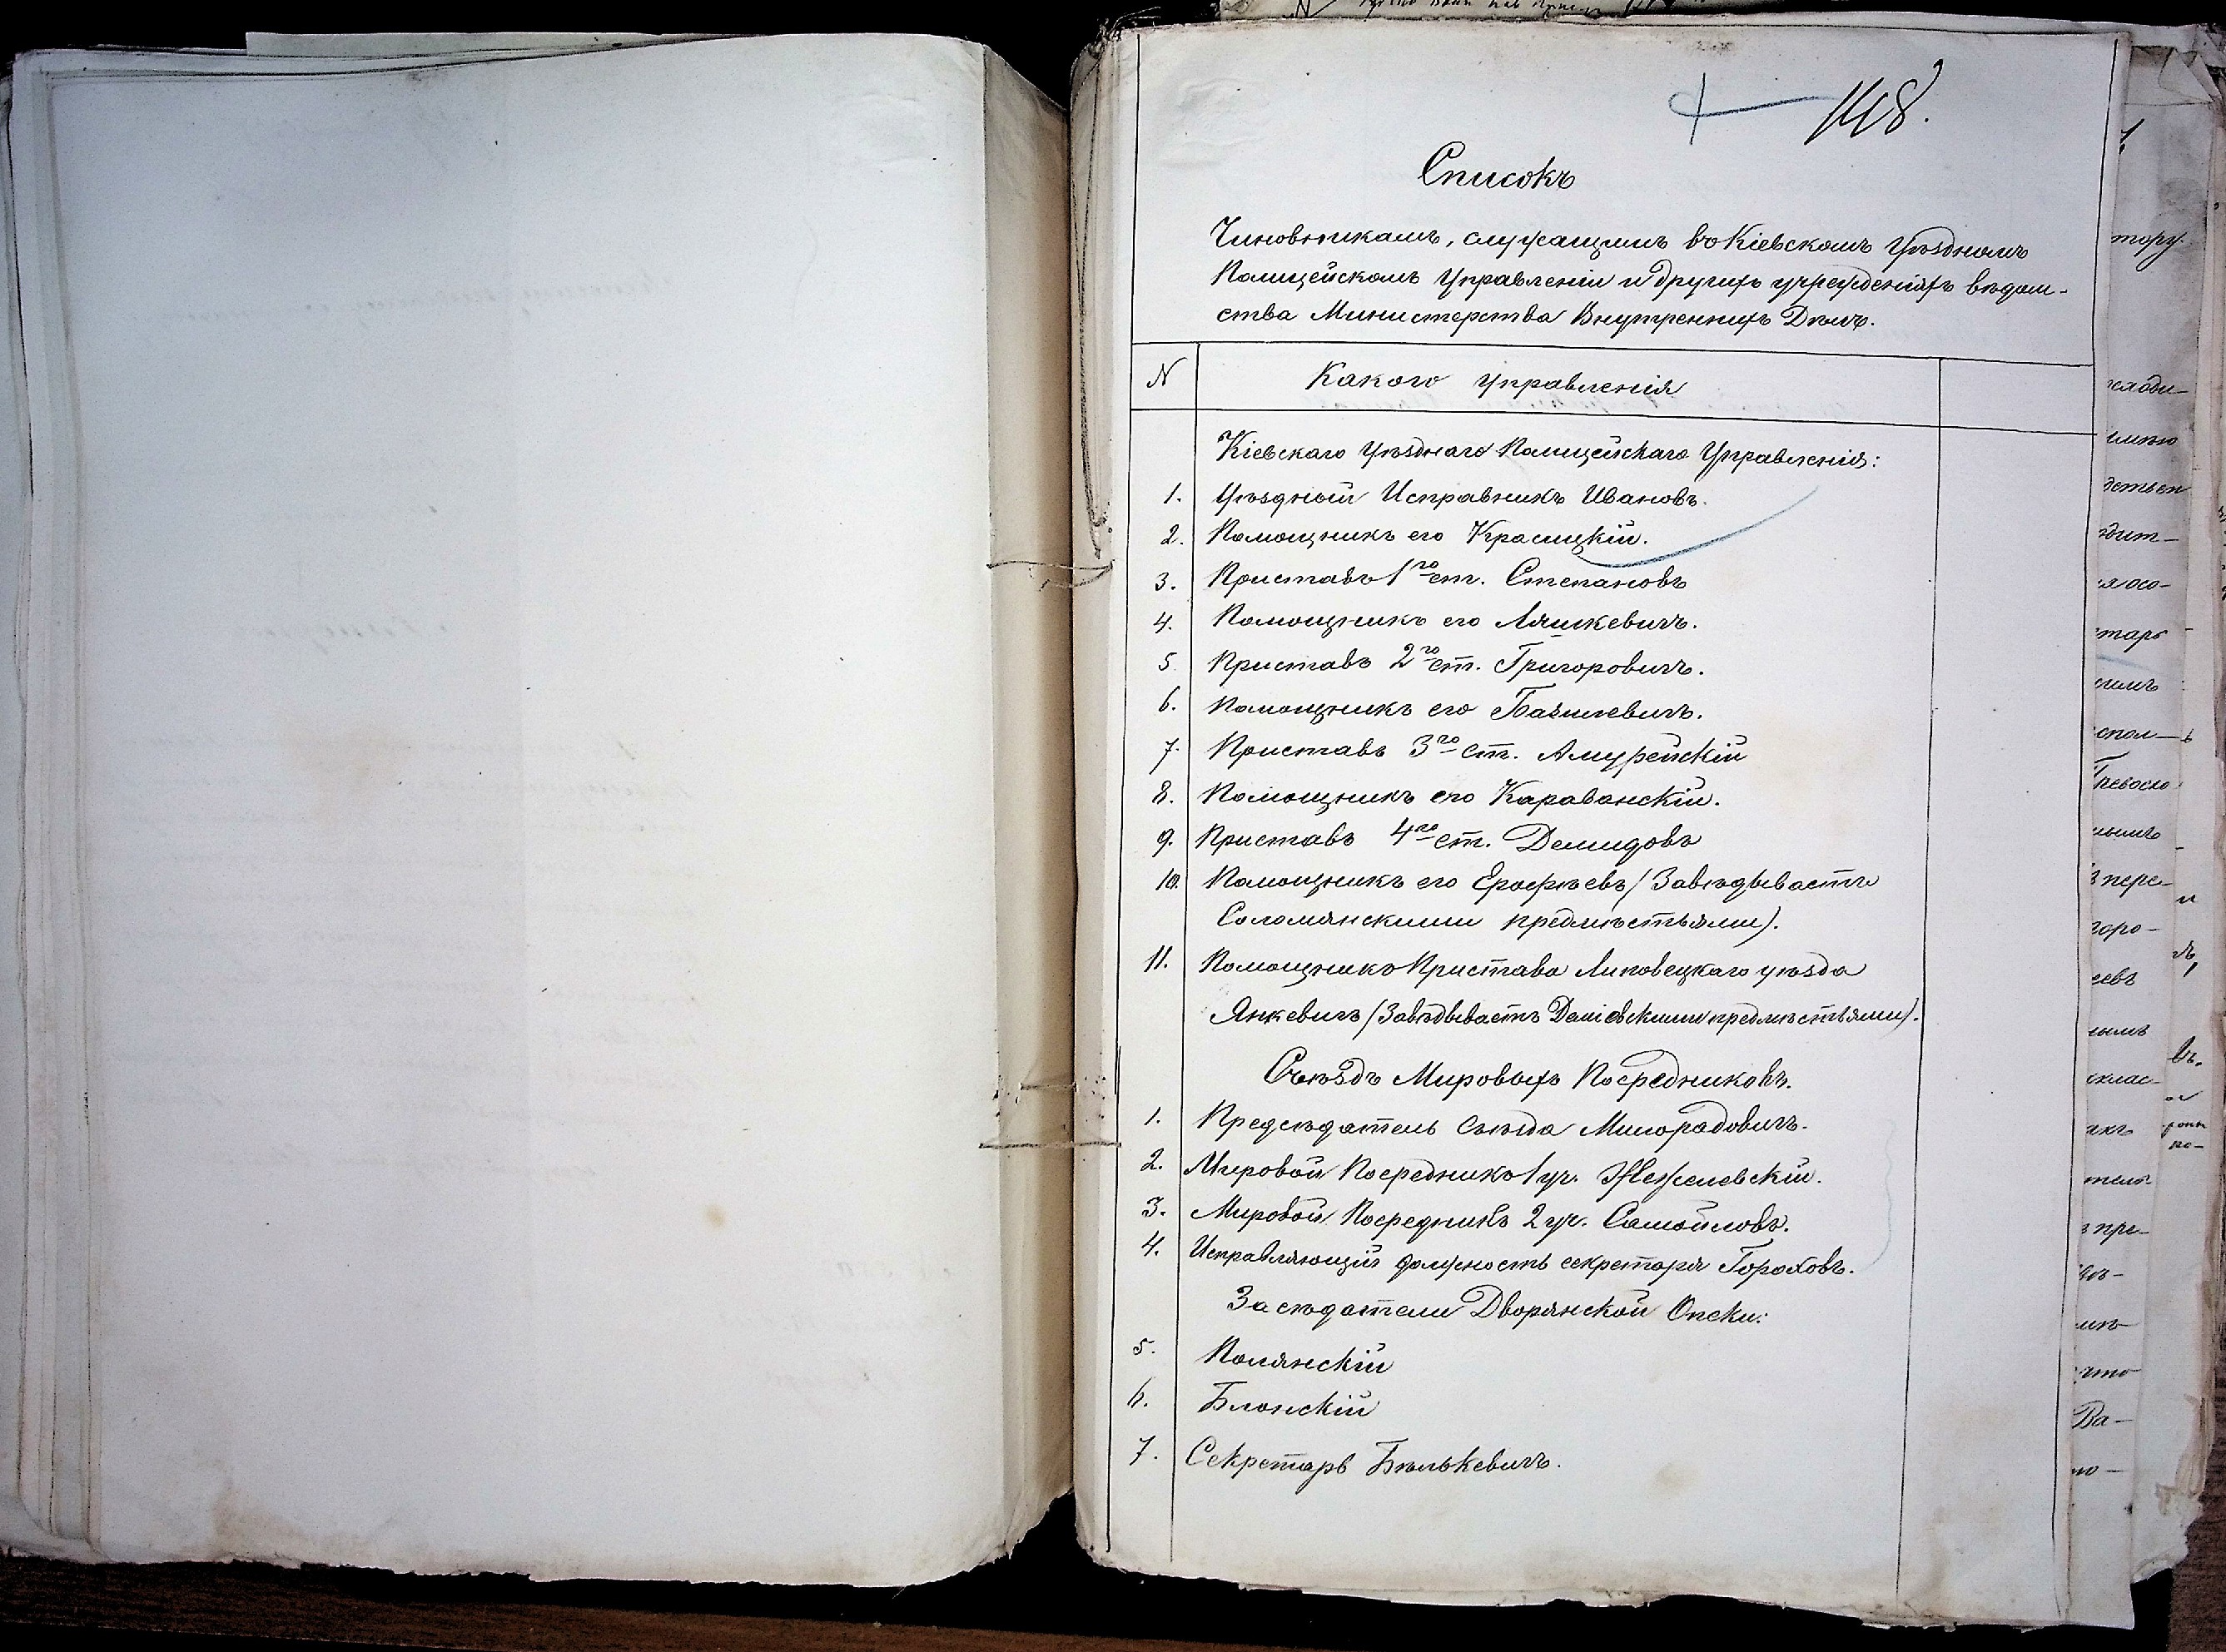 148.
Списокъ
Чиновникамъ, служащимъ въ Кіевскомъ Уѣздномъ
Полицейскомъ Управленіи и другихъ учрежденіяхъ вѣдом-
ства Министерства Внутреннихъ Дѣлъ.
N Какого управленія
Кіевскаго Уѣзднаго Полицейскаго Управленія:
1. Уѣздный Исправникъ Ивановъ.
2. Помощникъ его Красицкій.
3. Приставъ 1го ст. Степановъ
4. Помощникъ его Ляшкевичъ.
5 Приставъ 2го ст. Григоровичъ.
6. Помощникъ его Базилевичъ.
7. Приставъ 3го ст.
8. Помощникъ его Караванскій.
9. Приставъ 4го ст. Демидовъ
10. Помощникъ его Ерофѣевъ (Завѣдываетъ
Соломянскими предмѣстьями).
11. Помощникъ Пристава Липовецкаго уѣзда
Янкевичъ (Завѣдываетъ Деміевскими предмѣстьями).
Съѣздъ Мировыхъ Посредниковъ.
1. Предсѣдатель Съѣзда Милорадовичъ.
2. Мировой Посредникъ 1 уч.
3. Мировой Посредникъ 2 уч. Самойловъ.
4. Исправляющій должность секретаря Гороховъ.
Засѣдатели Дворянской Опеки:
5. Полянскій
6. Блонскій
7. Секретарь Бѣлькевичъ.